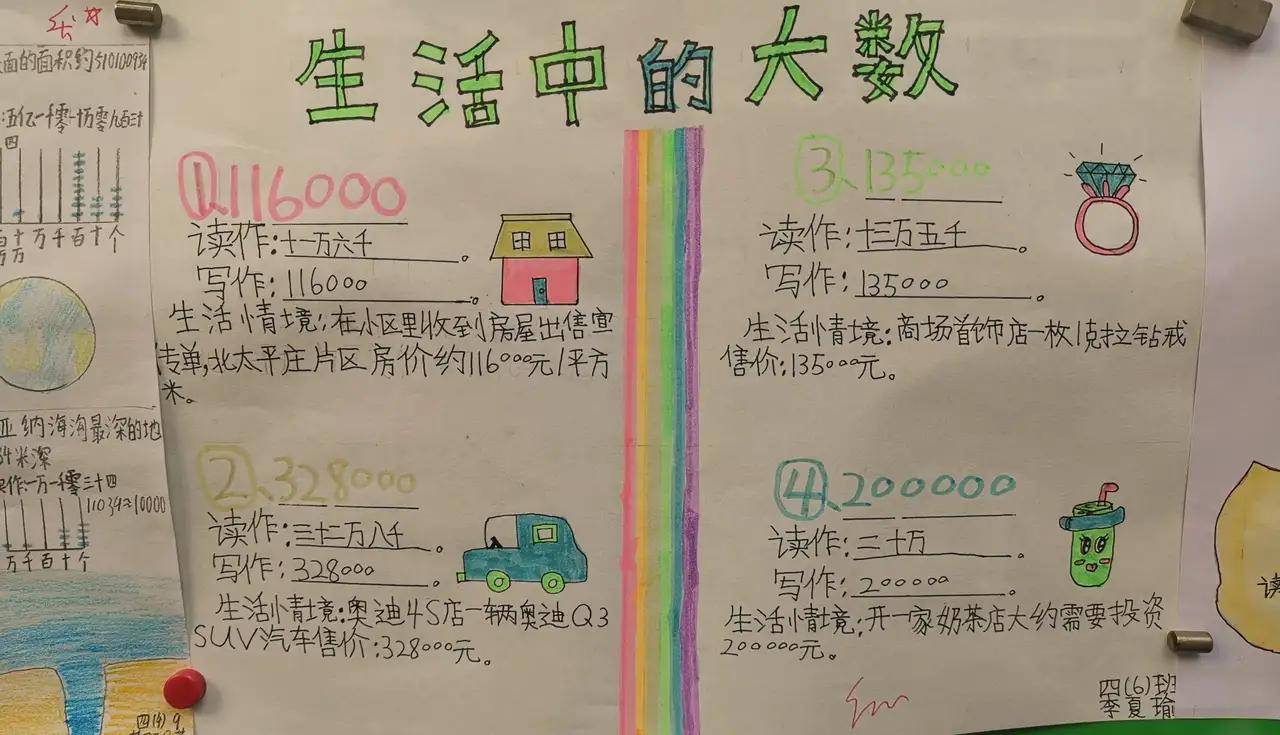 生活中的大数
面的面积约510100934
:五亿一千零一十万零九百三十
四
百十万千百十个
万万
亚纳海沟最深的地
34米深
作:一万一千零三十四
万千百十个
①、116000
读作:十一万六千。
写作:116000。
生活情境:在小区里收到房屋出售宣
传单,北太平庄片区房价约116000元/平方
米。
②、328000
读作:三十二万八千。
写作:328000。
生活情境:奥迪4S店一辆奥迪Q3
SUV汽车售价:328000元。
③、135000
读作:十三万五千。
写作:135000。
生活情境:商场首饰店一枚1克拉钻戒
售价:135000元。
④、200000
读作:二十万。
写作:200000。
生活情境:开一家奶茶店大约需要投资
200000元。
四(6)班
李夏瑜
读